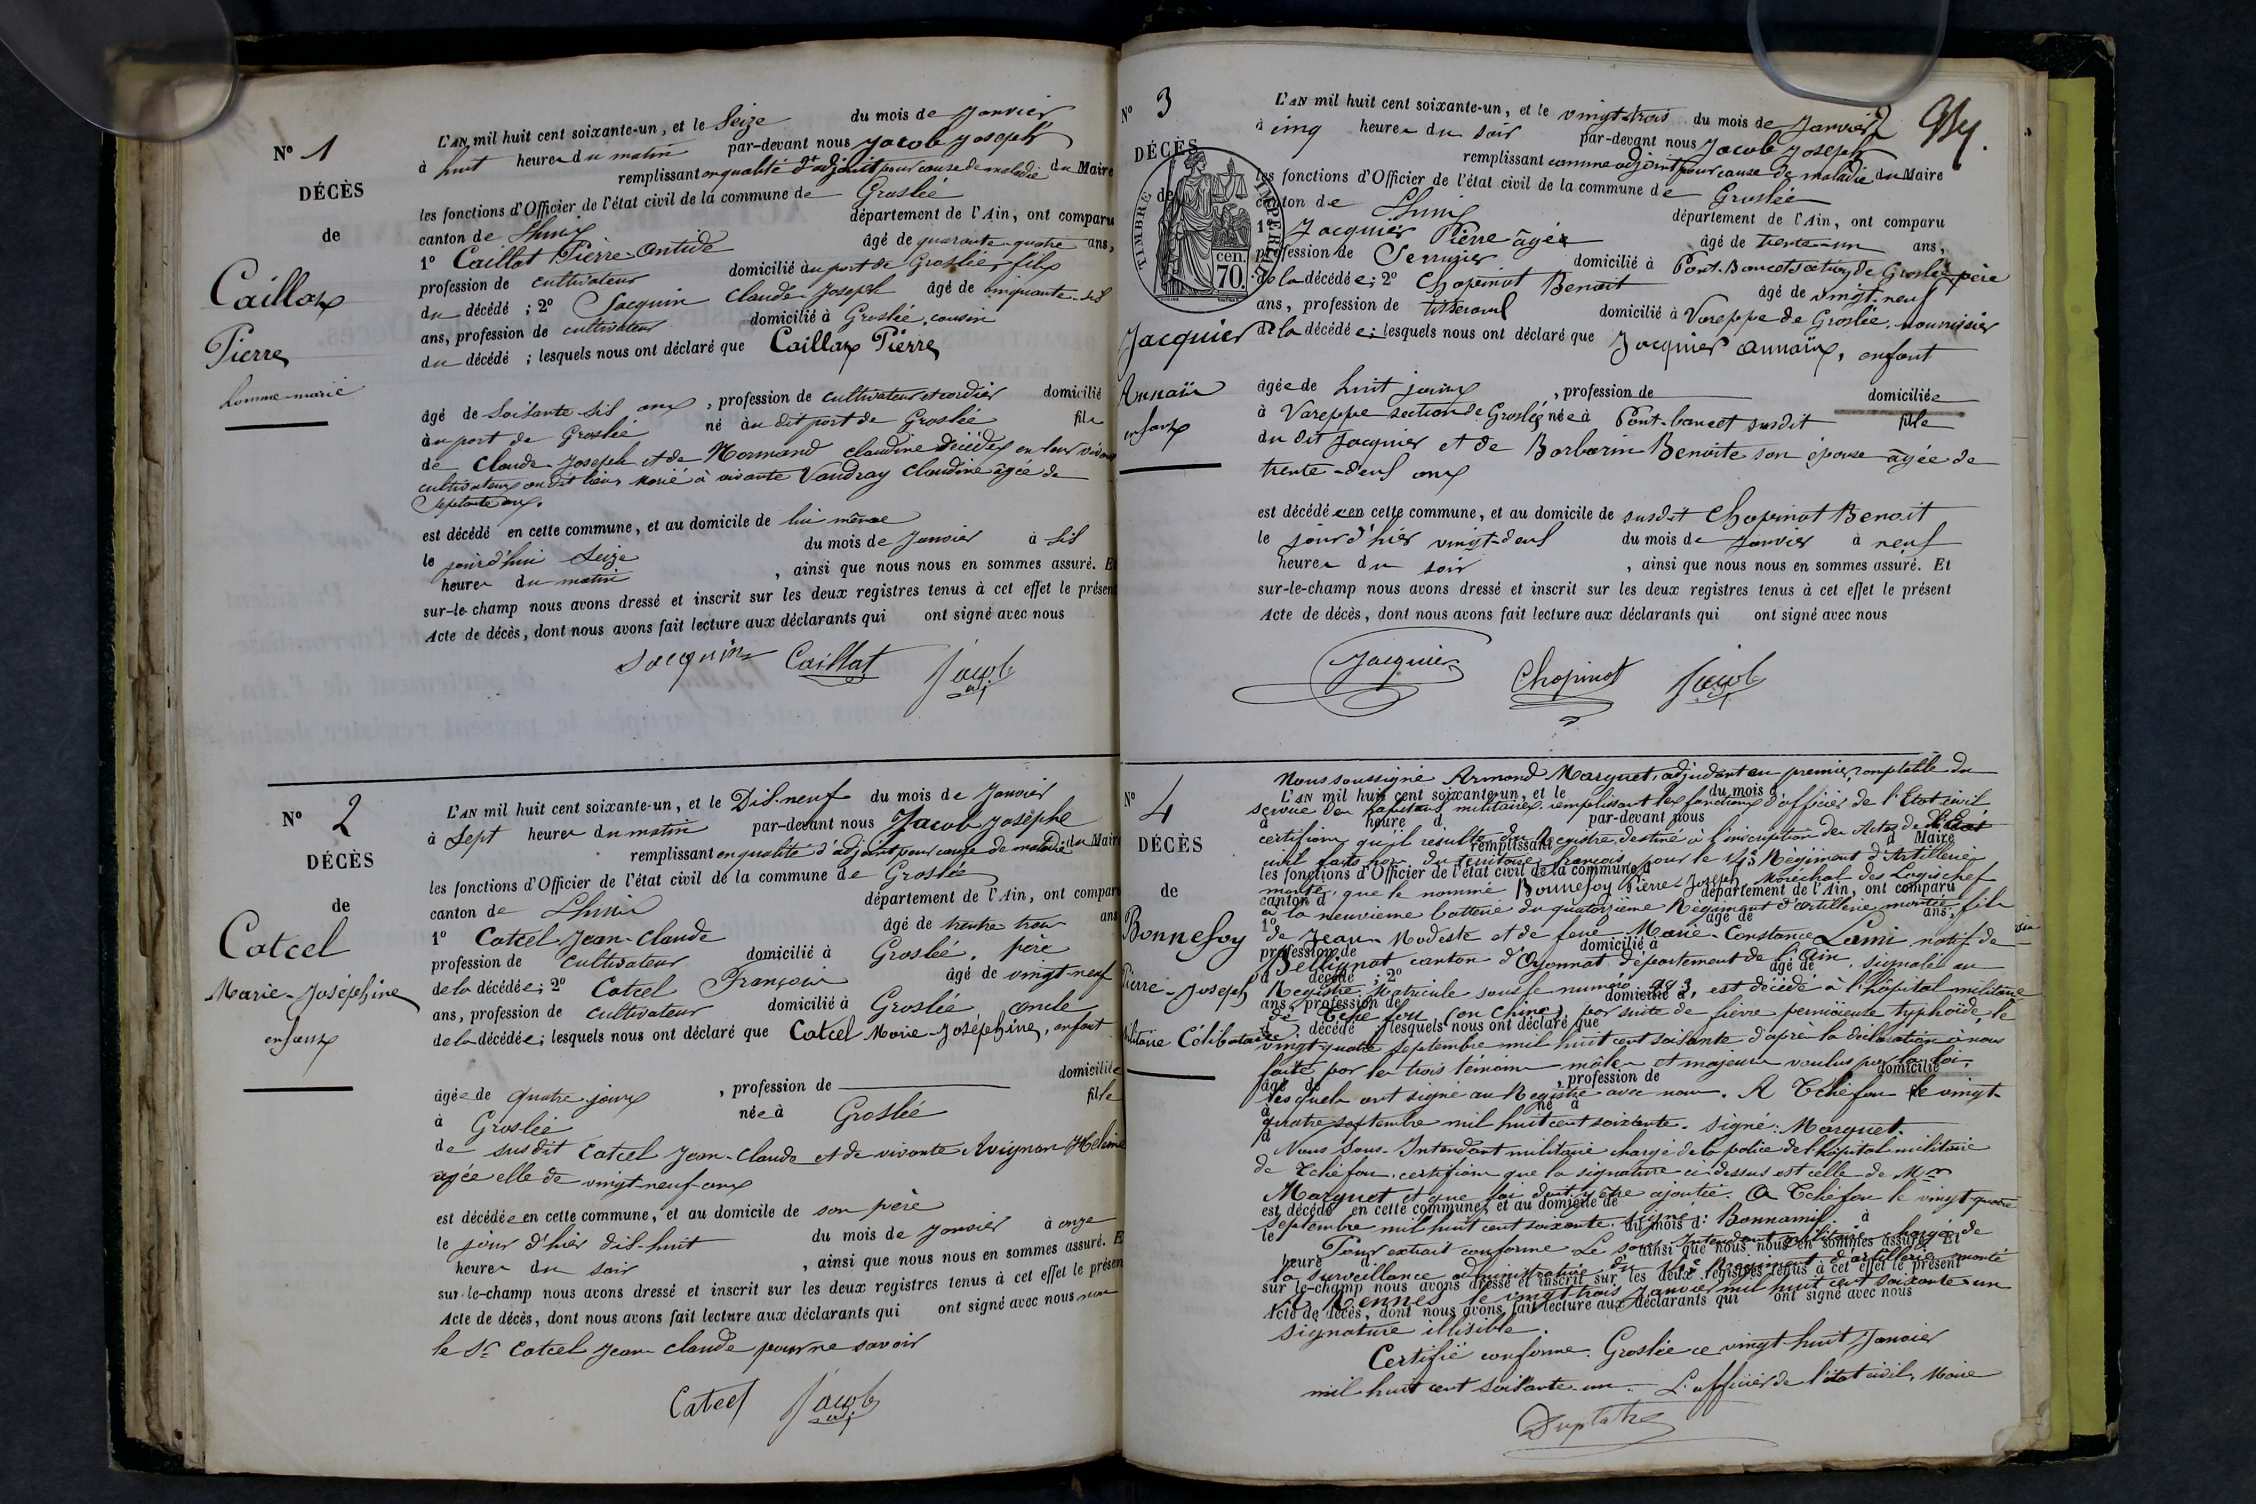 N° 1
DÉCÈS
de
Caillat
Pierre
homme marié
L'AN mil huit cent soixante-un, et le Seize du mois de Janvier
à huit heures du matin par-devant nous Jacob Joseph
remplissant en qualité d'adjoint pour cause de maladie du Maire
les fonctions d'Officier de l'état civil de la commune de Groslée
canton de Lhuis département de l'Ain, ont comparu
1° Caillat Pierre Antide âgé de quarante-quatre ans,
profession de cultivateur domicilié au port de Groslée, fils
du décédé ; 2° Jacquin Claude Joseph âgé de cinquante-six
ans, profession de cultivateur domicilié à Groslée, cousin
du décédé ; lesquels nous ont déclaré que Caillat Pierre
âgé de soixante six ans, profession de cultivateur et cordier domicilié
au port de Groslée né au dit port de Groslée fils
de Claude Joseph et de Normand Claudine décédés en leur vivant
cultivateurs au dit lieu, marié à vivante Vaudray Claudine âgée de
septante ans.
est décédé en cette commune, et au domicile de lui même
le jourd'hui seize du mois de Janvier à six
heures du matin, ainsi que nous nous en sommes assuré. Et
sur-le-champ nous avons dressé et inscrit sur les deux registres tenus à cet effet le présent
Acte de décès, dont nous avons fait lecture aux déclarants qui ont signé avec nous
Jacquin Caillat Jacob
adj
N° 2
DÉCÈS
de
Catcel
Marie-Joséphine
enfant
L'AN mil huit cent soixante-un, et le Dix-neuf du mois de Janvier
à Sept heures du matin par-devant nous Jacob Josèphe
remplissant en qualité d'adjoint pour cause de maladie du Maire
les fonctions d'Officier de l'état civil de la commune de Groslée
canton de Lhuis département de l'Ain, ont comparu
1° Catcel Jean-Claude âgé de trente trois ans
profession de cultivateur domicilié à Groslée, père
de la décédée ; 2° Catcel François âgé de vingt-neuf
ans, profession de cultivateur domicilié à Groslée oncle
de la décédée ; lesquels nous ont déclaré que Catcel Marie-Joséphine, enfant
âgée de quatre jours, profession de domiciliée
à Groslée née à Groslée fille
de susdit Catcel Jean-Claude et de vivante Avignon
agée elle de vingt-neuf ans
est décédée en cette commune, et au domicile de son père
le jour d'hier dix-huit du mois de Janvier à onze
heures du soir, ainsi que nous nous en sommes assuré. Et
sur-le-champ nous avons dressé et inscrit sur les deux registres tenus à cet effet le présent
Acte de décès, dont nous avons fait lecture aux déclarants qui ont signé avec nous non
le Sr Catcel Jean Claude pour ne savoir
Catcel Jacob
adj
2
N° 3
DÉCÈS
de
TIMBRE IMPERIAL
cen.
70.
Jacquier
Annaïs
enfant
L'AN mil huit cent soixante-un, et le vingt-trois du mois de Janvier
à cinq heures du soir par-devant nous Jacob Joseph
remplissant comme adjoint pour cause de maladie du Maire
les fonctions d'Officier de l'état civil de la commune de Groslée
canton de Lhuis département de l'Ain, ont comparu
1° Jacquier Pierre âgé âgé de trente-un ans,
profession de Serrurier domicilié à Pont-Bancet section de Groslée, père
de la décédée ; 2° Chopinot Benoit âgé de vingt-neuf
ans, profession de tisserand domicilié à Vareppe de Groslée, nourricier
de la décédée ; lesquels nous ont déclaré que Jacquier Annaïs, enfant
âgée de huit jours, profession de domiciliée
à Vareppe section de Groslée née à Pont-bancet susdit fille
du dit Jacquier et de Barbarin Benoite son épouse âgée de
trente-deux ans
est décédée en cette commune, et au domicile de susdit Chopinot Benoit
le jour d'hier vingt-deux du mois de Janvier à neuf
heures du soir, ainsi que nous nous en sommes assuré. Et
sur-le-champ nous avons dressé et inscrit sur les deux registres tenus à cet effet le présent
Acte de décès, dont nous avons fait lecture aux déclarants qui ont signé avec nous
Jacquier Chopinot Jacob
adj
N° 4
DÉCÈS
de
Bonnefoy
Pierre-Joseph
militaire Célibataire
Nous soussigné Armand Marquet, adjudant en premier, comptable du
L'AN mil huit cent soixante-un, et le du mois d
service des hôpitaux militaires remplissant les fonctions d'officier de l'Etat civil
à heure d par-devant nous
certifions qu'il résulte du Registre destiné à l'inscription des Actes de l'Etat
remplissant d Maire
civil faits hors du territoire français pour le 14e Régiment d'Artillerie
les fonctions d'Officier de l'état civil de la commune d
montée, que le nommé Bonnefoy Pierre-Joseph Maréchal des Logis chef
canton d département de l'Ain, ont comparu
à la neuvième batterie du quatorzième Régiment d'artillerie montée, fils
1° âgé de ans,
de Jean-Modeste et de feue Marie-Constance Lami natif de
profession de domicilié à
Bellignat canton d'Oyonnat département de l'Ain, signalé au
d décédé ; 2° âgé de
Registre Matricule sous le numéro 983, est décédé à l'hôpital militaire
ans, profession de domicilié à
de Tché fou (en Chine) par suite de fièvre pernicieuse typhoïde, le
d décédé ; lesquels nous ont déclaré que
vingt-quatre septembre mil huit cent soixante d'après la déclaration à nous
faite par les trois témoins mâles et majeurs voulus par la loi,
âgé de, profession de domicilié
lesquels ont signé au Registre avec nous. A Tchéfou le vingt-
à né à fil
quatre septembre mil huit cent soixante. signé : Marquet.
d
Nous Sous-Intendant militaire chargé de la police de l'hôpital militaire
de Tchéfou certifions que la signature ci-dessus est celle de Mr
Marquet et que foi doit y être ajoutée. A Tchéfou le vingt-quatre
est décédé en cette commune, et au domicile de
septembre mil huit cent soixante. signé : Bonnamis
le du mois d à
Pour extrait conforme Le sous-Intendant militaire chargé de
heure d ainsi que nous nous en sommes assuré. Et
la surveillance administrative du 14e Régiment d'artillerie monté
sur-le-champ nous avons dressé et inscrit sur les deux registres tenus à cet effet le présent
A Rennes le vingt-trois Janvier mil huit cent soixante-un
Acte de décès, dont nous avons fait lecture aux déclarants qui ont signé avec nous
signature illisible.
Certifié conforme. Groslée ce vingt-huit Janvier
mil huit cent soixante-un. L'officier de l'état civil, Maire